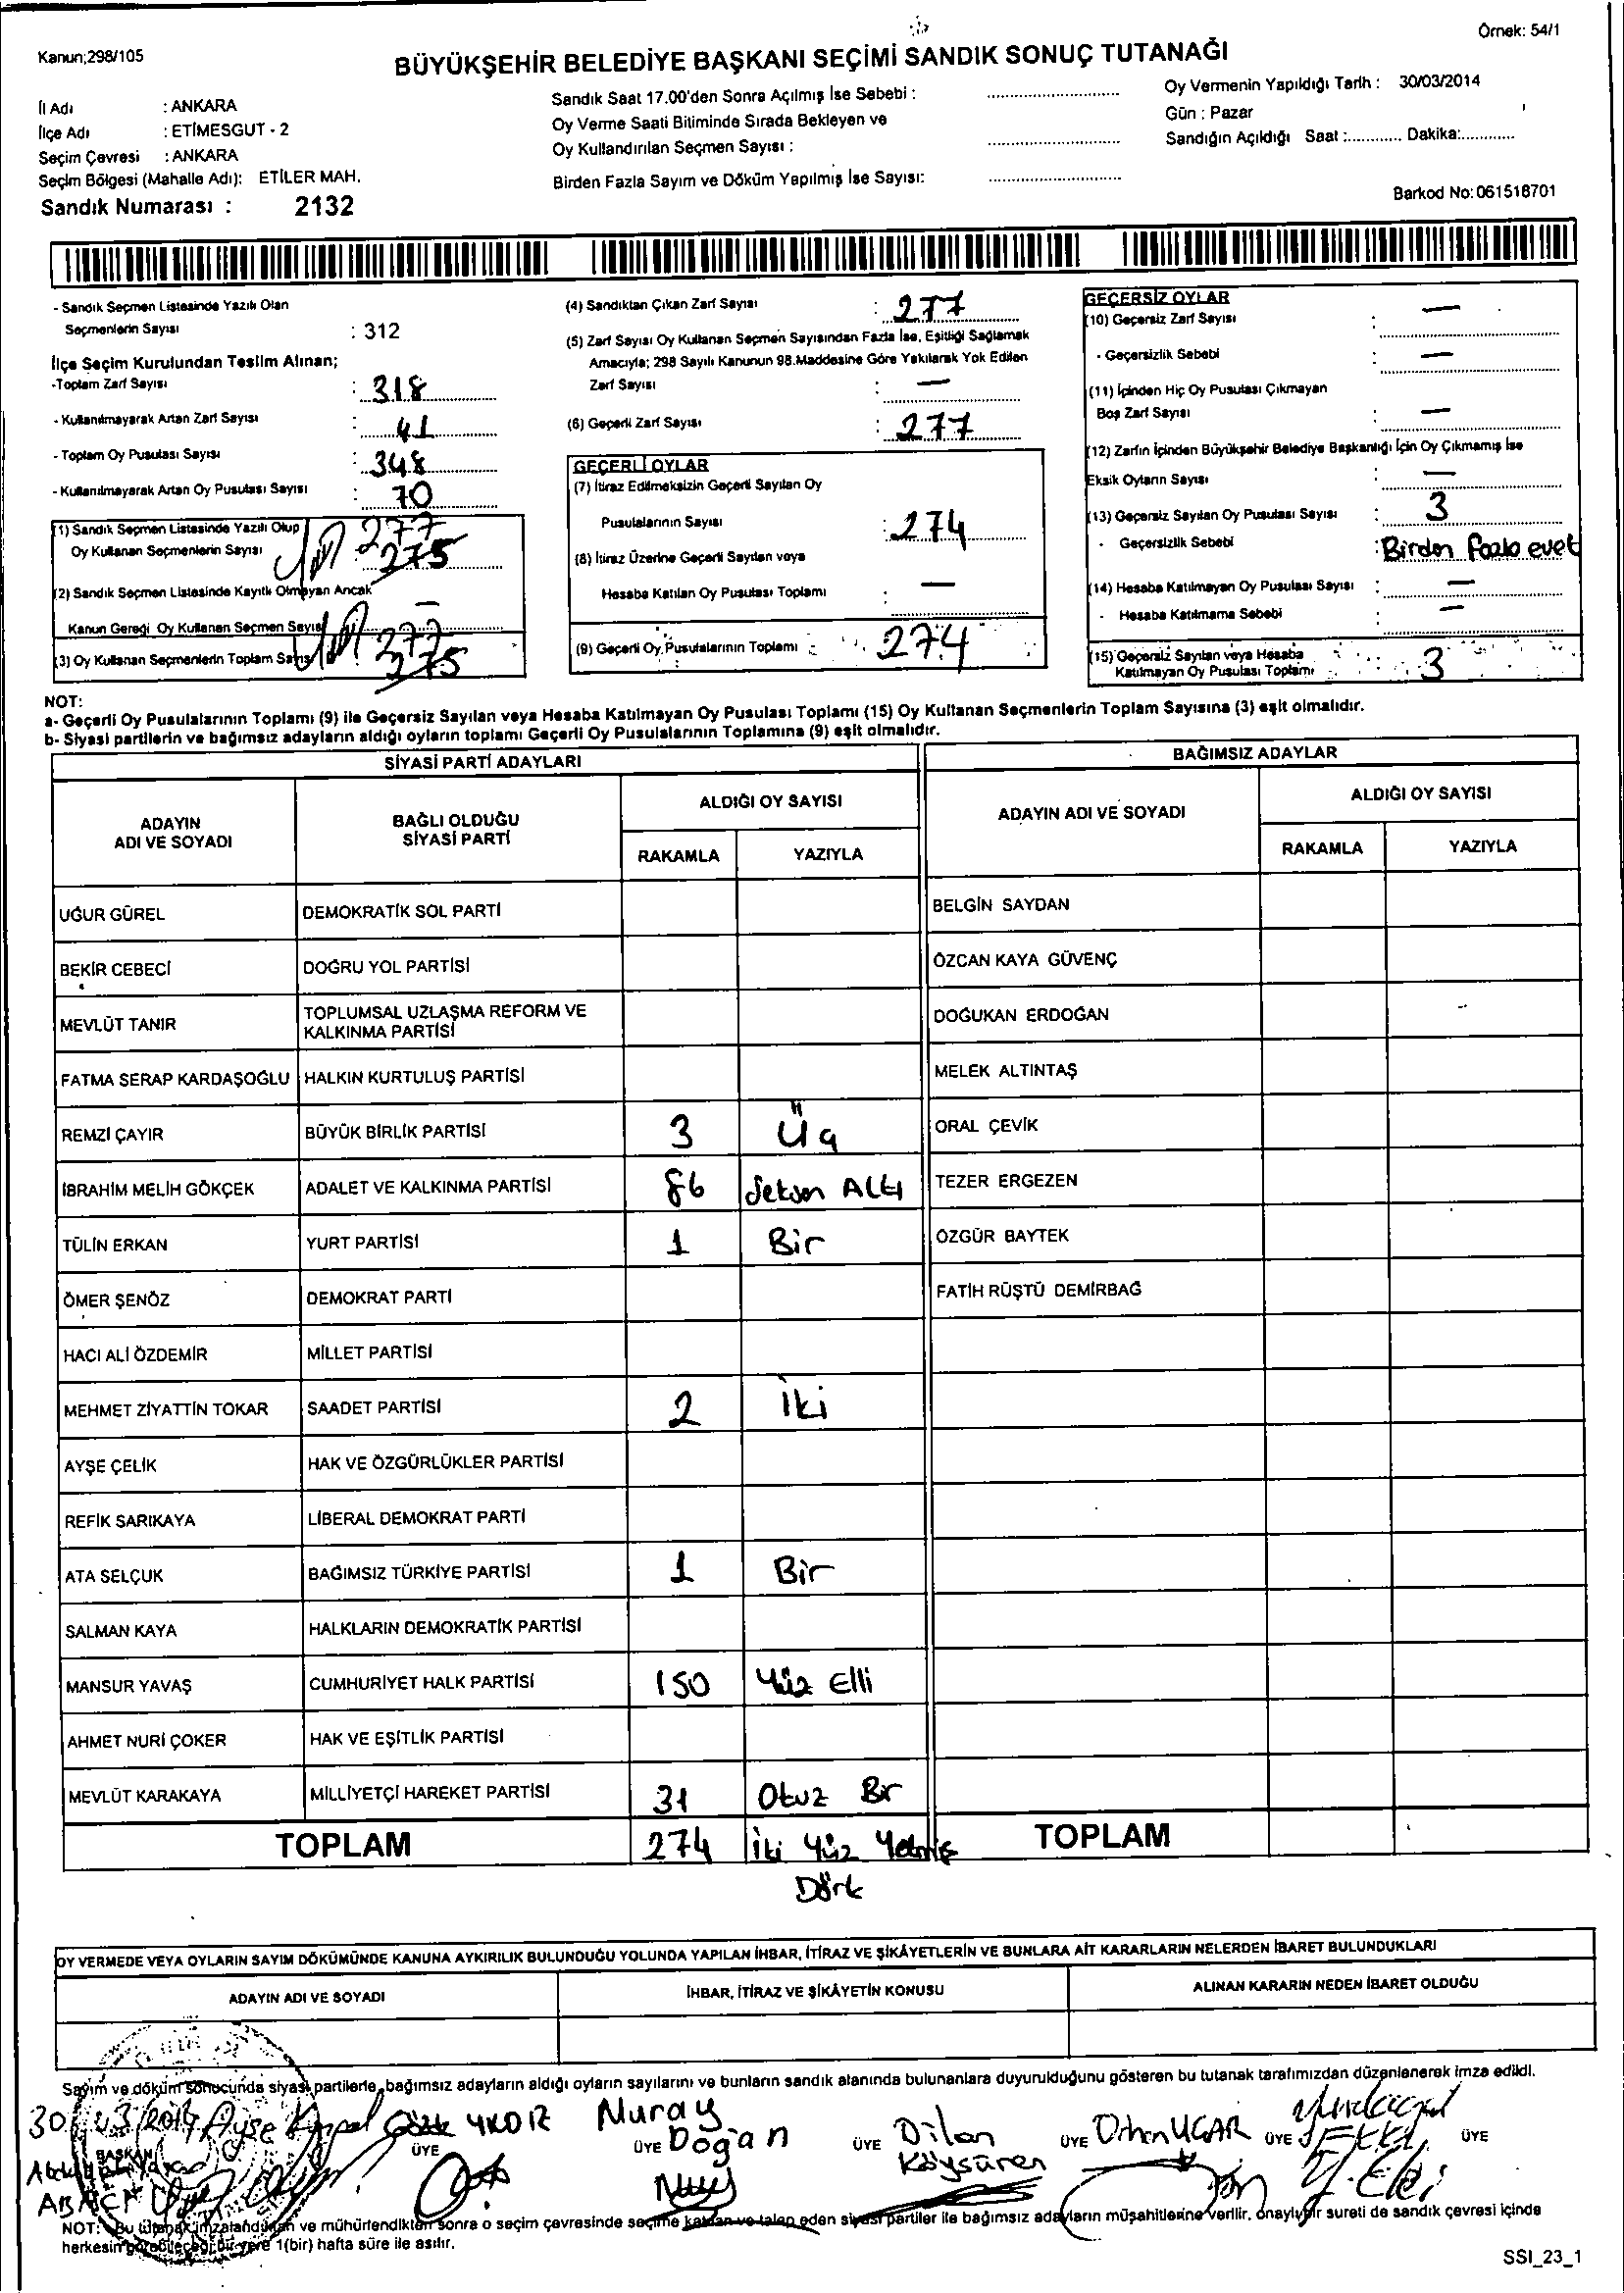 Örnek: 54/1
Kanun;298/105
BÜYÜKŞEHİR BELEDİYE BAŞKANI SEÇİMİ SANDIK SONUÇ TUTANAĞI
İl Adı : ANKARA
İlçe Adı : ETİMESGUT - 2
Seçim Çevresi : ANKARA
Seçim Bölgesi (Mahalle Adı): ETİLER MAH.
Sandık Numarası : 2132
Sandık Saat 17.00'den Sonra Açılmış İse Sebebi :
Oy Verme Saati Bitiminde Sırada Bekleyen ve
Oy Kullandırılan Seçmen Sayısı :
Birden Fazla Sayım ve Döküm Yapılmış İse Sayısı:
Oy Vermenin Yapıldığı Tarih : 30/03/2014
Gün : Pazar
Sandığın Açıldığı Saat :............ Dakika:............
Barkod No: 061518701
- Sandık Seçmen Listesinde Yazılı Olan
Seçmenlerin Sayısı : 312
İlçe Seçim Kurulundan Teslim Alınan;
-Toplam Zarf Sayısı : 318
- Kullanılmayarak Artan Zarf Sayısı : 41
- Toplam Oy Pusulası Sayısı : 348
- Kullanılmayarak Artan Oy Pusulası Sayısı : 70
(1) Sandık Seçmen Listesinde Yazılı Olup 277
Oy Kullanan Seçmenlerin Sayısı 275
(2) Sandık Seçmen Listesinde Kayıtlı Olmayan Ancak
Kanun Gereği Oy Kullanan Seçmen Sayısı —
(3) Oy Kullanan Seçmenlerin Toplam Sayısı 277
275
(4) Sandıktan Çıkan Zarf Sayısı : 277
(5) Zarf Sayısı Oy Kullanan Seçmen Sayısından Fazla İse, Eşitliği Sağlamak
Amacıyla; 298 Sayılı Kanunun 98.Maddesine Göre Yakılarak Yok Edilen
Zarf Sayısı : —
(6) Geçerli Zarf Sayısı : 277
GEÇERLİ OYLAR
(7) İtiraz Edilmeksizin Geçerli Sayılan Oy
Pusulalarının Sayısı : 274
(8) İtiraz Üzerine Geçerli Sayılan veya
Hesaba Katılan Oy Pusulası Toplamı : —
(9) Geçerli Oy Pusulalarının Toplamı : 274
GEÇERSİZ OYLAR
(10) Geçersiz Zarf Sayısı : —
- Geçersizlik Sebebi : —
(11) İçinden Hiç Oy Pusulası Çıkmayan
Boş Zarf Sayısı : —
(12) Zarfın İçinden Büyükşehir Belediye Başkanlığı İçin Oy Çıkmamış İse
Eksik Oyların Sayısı : —
(13) Geçersiz Sayılan Oy Pusulası Sayısı : 3
- Geçersizlik Sebebi : Birden fazla evet
(14) Hesaba Katılmayan Oy Pusulası Sayısı : —
- Hesaba Katılmama Sebebi : —
(15) Geçersiz Sayılan veya Hesaba
Katılmayan Oy Pusulası Toplamı : 3
NOT:
a- Geçerli Oy Pusulalarının Toplamı (9) ile Geçersiz Sayılan veya Hesaba Katılmayan Oy Pusulası Toplamı (15) Oy Kullanan Seçmenlerin Toplam Sayısına (3) eşit olmalıdır.
b- Siyasi partilerin ve bağımsız adayların aldığı oyların toplamı Geçerli Oy Pusulalarının Toplamına (9) eşit olmalıdır.
SİYASİ PARTİ ADAYLARI
ADAYIN ADI VE SOYADI BAĞLI OLDUĞU SİYASİ PARTİ ALDIĞI OY SAYISI
RAKAMLA YAZIYLA
UĞUR GÜREL DEMOKRATİK SOL PARTİ
BEKİR CEBECİ DOĞRU YOL PARTİSİ
MEVLÜT TANIR TOPLUMSAL UZLAŞMA REFORM VE KALKINMA PARTİSİ
FATMA SERAP KARDAŞOĞLU HALKIN KURTULUŞ PARTİSİ
REMZİ ÇAYIR BÜYÜK BİRLİK PARTİSİ 3 Üç
İBRAHİM MELİH GÖKÇEK ADALET VE KALKINMA PARTİSİ 86 Seksen Altı
TÜLİN ERKAN YURT PARTİSİ 1 Bir
ÖMER ŞENÖZ DEMOKRAT PARTİ
HACI ALİ ÖZDEMİR MİLLET PARTİSİ
MEHMET ZİYATTİN TOKAR SAADET PARTİSİ 2 İki
AYŞE ÇELİK HAK VE ÖZGÜRLÜKLER PARTİSİ
REFİK SARIKAYA LİBERAL DEMOKRAT PARTİ
ATA SELÇUK BAĞIMSIZ TÜRKİYE PARTİSİ 1 Bir
SALMAN KAYA HALKLARIN DEMOKRATİK PARTİSİ
MANSUR YAVAŞ CUMHURİYET HALK PARTİSİ 150 Yüz Elli
AHMET NURİ ÇOKER HAK VE EŞİTLİK PARTİSİ
MEVLÜT KARAKAYA MİLLİYETÇİ HAREKET PARTİSİ 31 Otuz Bir
TOPLAM 274 İki Yüz Yetmiş
Dört
BAĞIMSIZ ADAYLAR
ADAYIN ADI VE SOYADI ALDIĞI OY SAYISI
RAKAMLA YAZIYLA
BELGİN SAYDAN
ÖZCAN KAYA GÜVENÇ
DOĞUKAN ERDOĞAN
MELEK ALTINTAŞ
ORAL ÇEVİK
TEZER ERGEZEN
ÖZGÜR BAYTEK
FATİH RÜŞTÜ DEMİRBAĞ
TOPLAM
OY VERMEDE VEYA OYLARIN SAYIM DÖKÜMÜNDE KANUNA AYKIRILIK BULUNDUĞU YOLUNDA YAPILAN İHBAR, İTİRAZ VE ŞİKÂYETLERİN VE BUNLARA AİT KARARLARIN NELERDEN İBARET BULUNDUKLARI
ADAYIN ADI VE SOYADI İHBAR, İTİRAZ VE ŞİKÂYETİN KONUSU ALINAN KARARIN NEDEN İBARET OLDUĞU
Sayım ve döküm sonucunda siyasi partilerle, bağımsız adayların aldığı oyların sayılarını ve bunların sandık alanında bulunanlara duyurulduğunu gösteren bu tutanak tarafımızdan düzenlenerek imza edildi.
30/03/2014 Ayşe Nuray
BAŞKAN ÜYE ÜYE Doğan ÜYE Dilan ÜYE Orhan UÇAR ÜYE ÜYE
ABACI Köysüren Y. Eki
NOT: Bu tutanak imzalandıktan ve mühürlendikten sonra o seçim çevresinde seçime katılan ve talep eden siyasi partiler ile bağımsız adayların müşahitlerine verilir, onaylı bir sureti de sandık çevresi içinde
herkesin görebileceği bir yere 1(bir) hafta süre ile asılır.
SSI_23_1